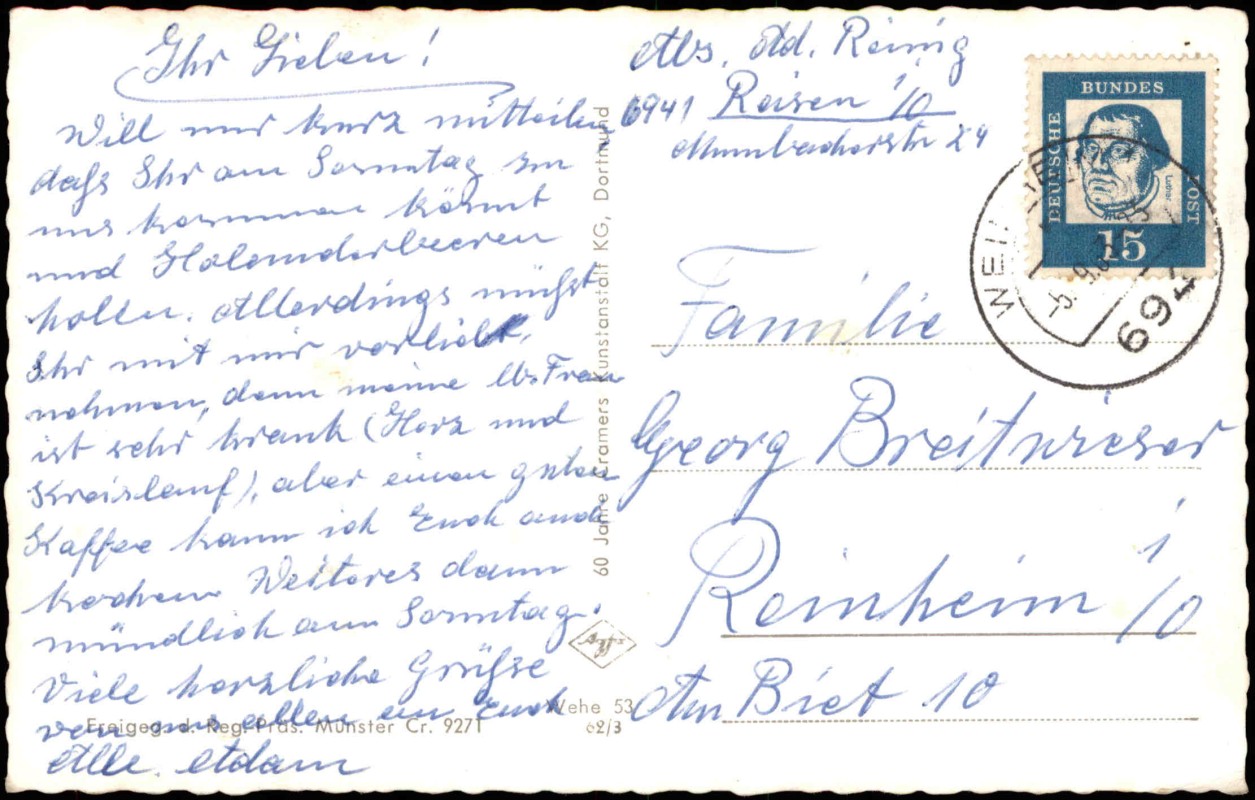 Ihr Lieben!
Will nur kurz mitteilen
daß Ihr am Sonntag zu
uns kommen könnt
und Holounderbeeren
hollen. Allerdings müßt
Ihr mit mir vorlieb
nehmen, denn meine lb. Frau
ist sehr krank (Herz und
Kreislauf), aber einen guten
Kaffee kann ich Euch auch
kochen Weiteres dann
mündlich am Sonntag.
Viele herzliche Grüße
von uns allen an Euch
Alle. Adam
Freigeg. d. Reg. Präs. Münster Cr. 9271
60 Jahre Cramers Kunstanstalt KG, Dortmund
Wehe 53
62/3
Abs. Ad. Reinig
6941 Reisen i/O
Mumbacherstr 24
DEUTSCHE BUNDES POST
Luther
15
694
Familie
Georg Breitwieser
Reinheim i/O
Am Biet 10